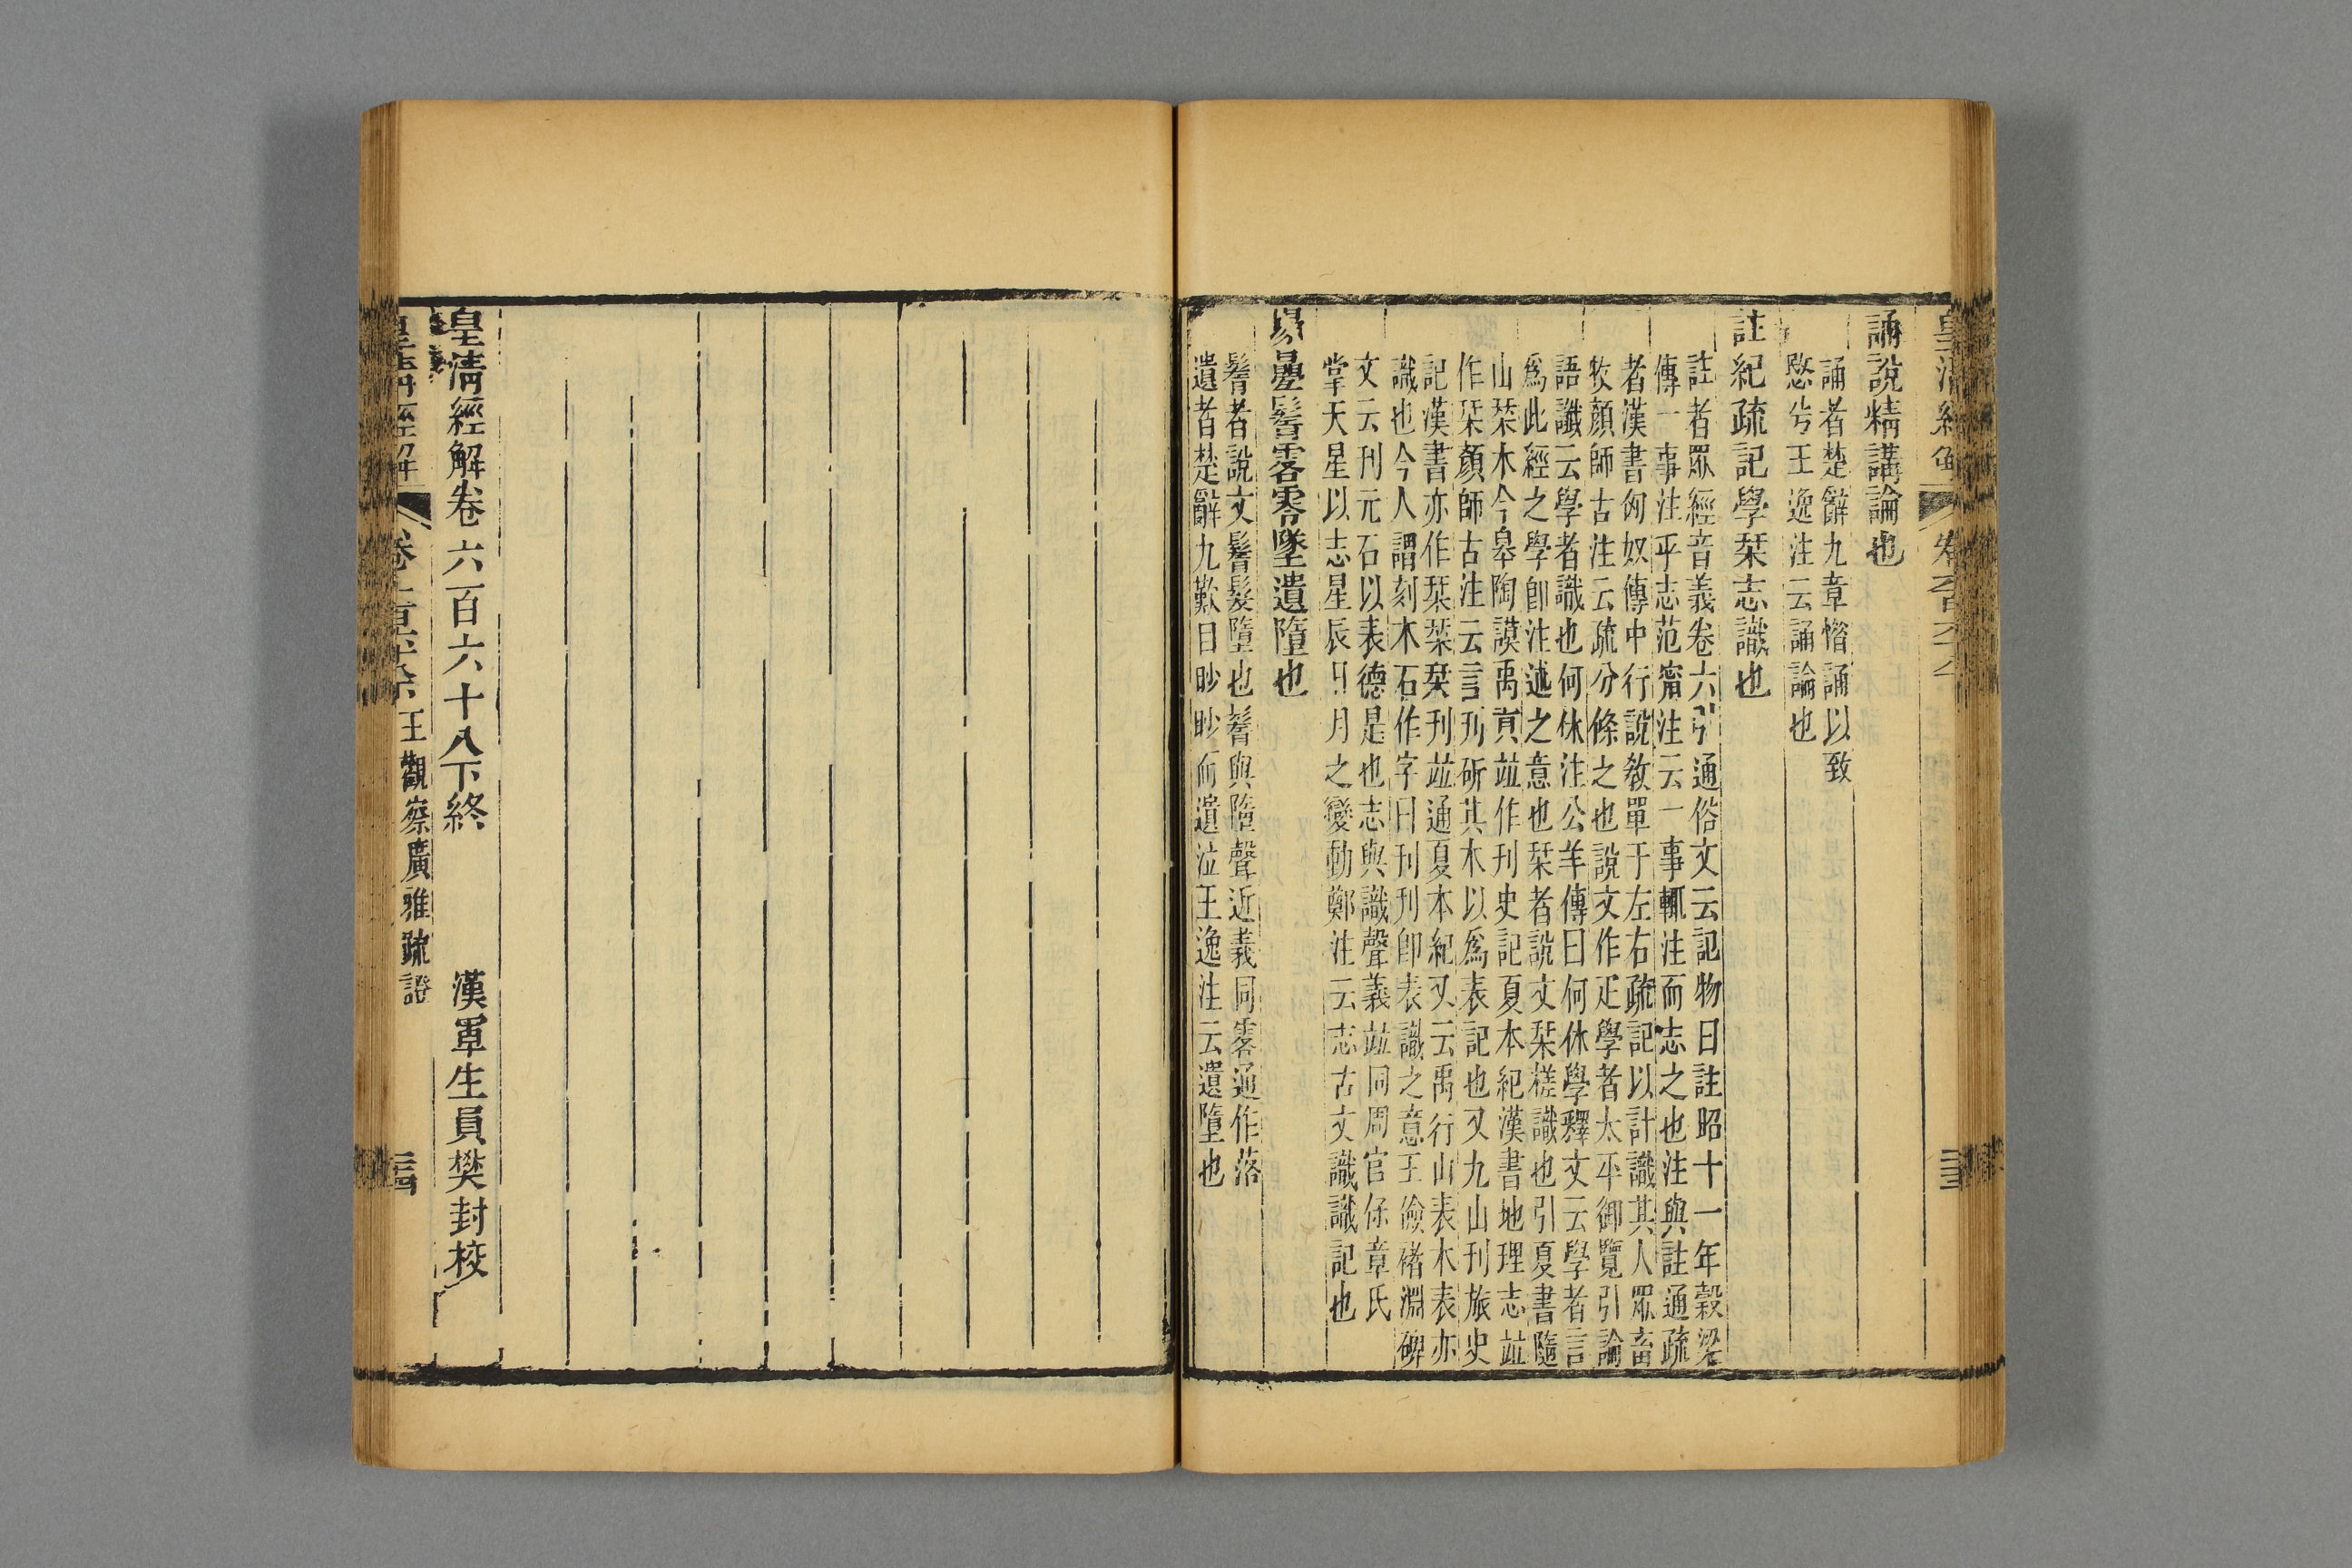 誦說精講論也
誦者楚辭九章惜誦以致
愍兮王逸注云誦論也
註紀疏記學栞志識也
註者眾經音義卷六引通俗文云記物曰註昭十一年穀梁
傳一事注乎志范甯注云一事輒注而志之也注與註通疏
者漢書匈奴傳中行說敎單于左右疏記以計識其人眾畜
牧顏師古注云疏分條之也說文作䟽學者太平御覽引論
語讖云學者識也何休注公羊傳曰何休學釋文云學者言
爲此經之學卽注述之意也栞者說文栞槎識也引夏書隨
山栞木今皋陶謨禹貢竝作刊史記夏本紀漢書地理志竝
作栞顏師古注云言刋斫其木以爲表記也又九山刊旅史
記漢書亦作栞栞栞刊竝通夏本紀又云禹行山表木表亦
識也今人謂刻木石作字曰刊刊卽表識之意王儉褚淵碑
文云刊元石以表德是也志與識聲義竝同周官保章氏
掌天星以志星辰日月之變動鄭注云志古文識識記也
鬄㬪鬌零墜遺隋也
鬌者說文鬌髮隋也鬌與隋聲近義同零通作落
遺者楚辭九歎目眇眇而遺泣王逸注云遺墮也
皇清經解卷六百六十八下終 漢軍生員樊封校
皇清經解 王觀察廣雅疏證